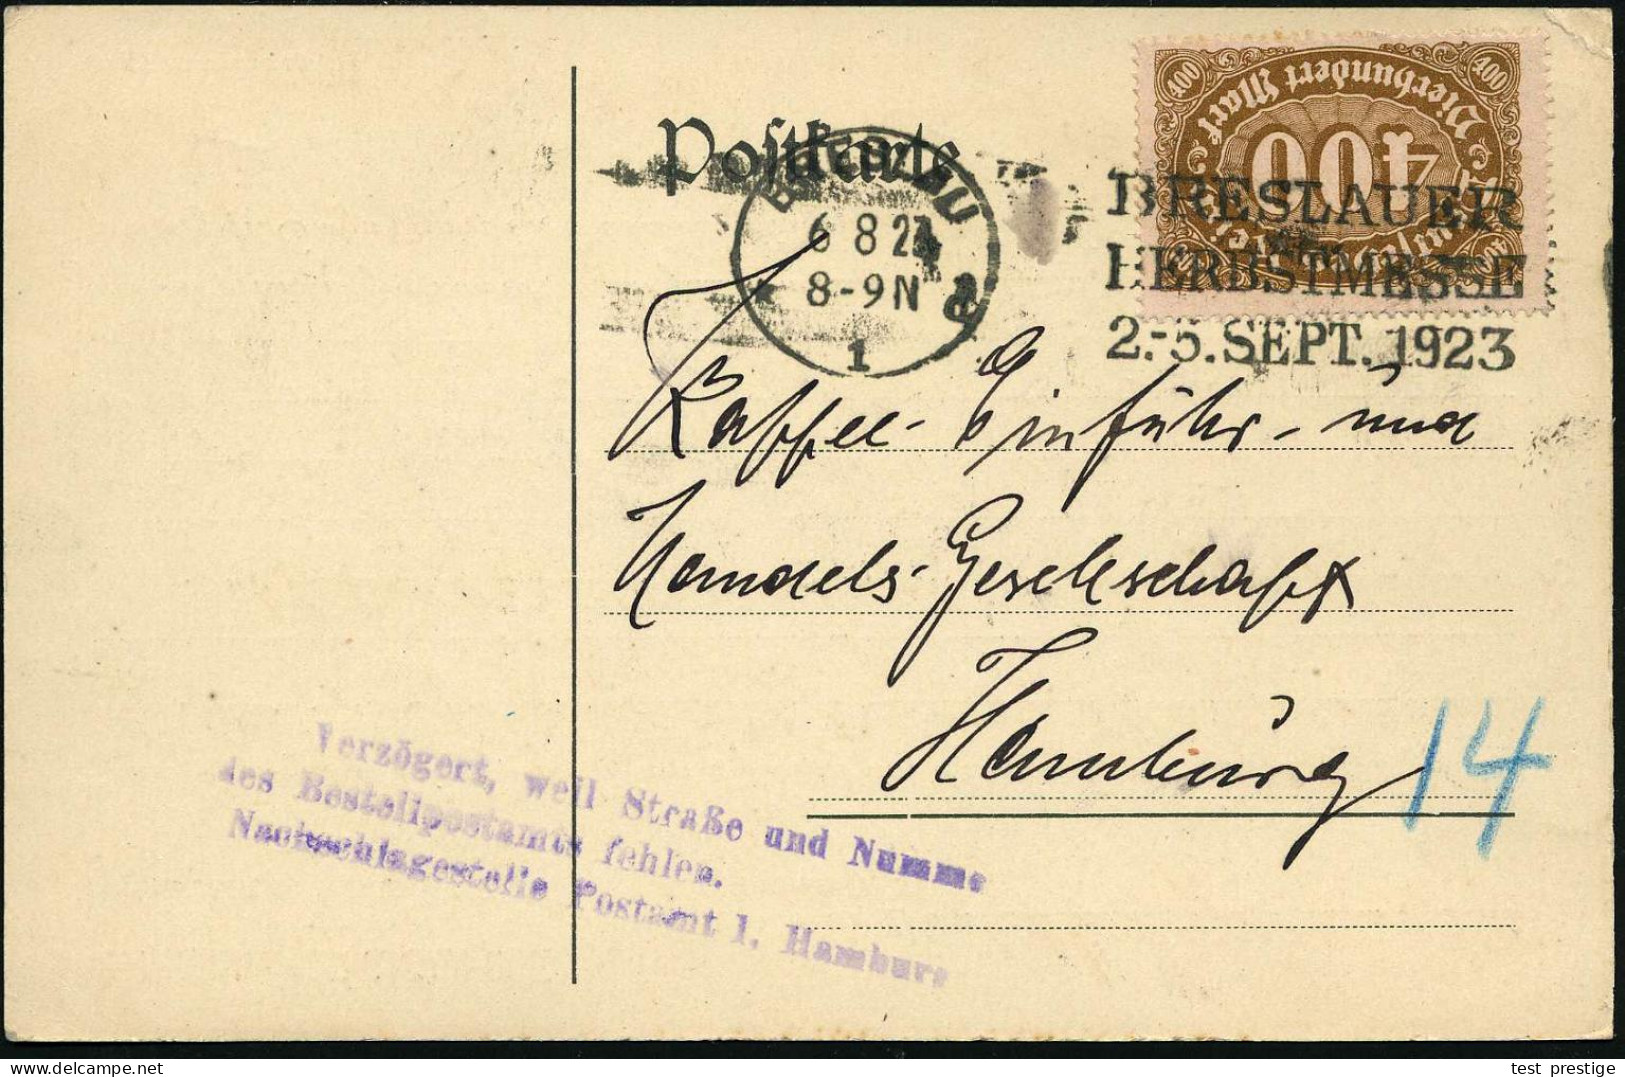 Postkarte
BRESLAU
6 8 23
8-9 N
1
400
400
Vierhundert Mark
400
Deutsches Reich
BRESLAUER
HERBSTMESSE
2.-5. SEPT. 1923
Kaffee- Einfuhr- und
Handels-Gesellschaft
Hamburg
14
Verzögert, weil Straße und Numme
des Bestellpostamts fehlen.
Nachschlagestelle Postamt 1. Hamburg
test prestige